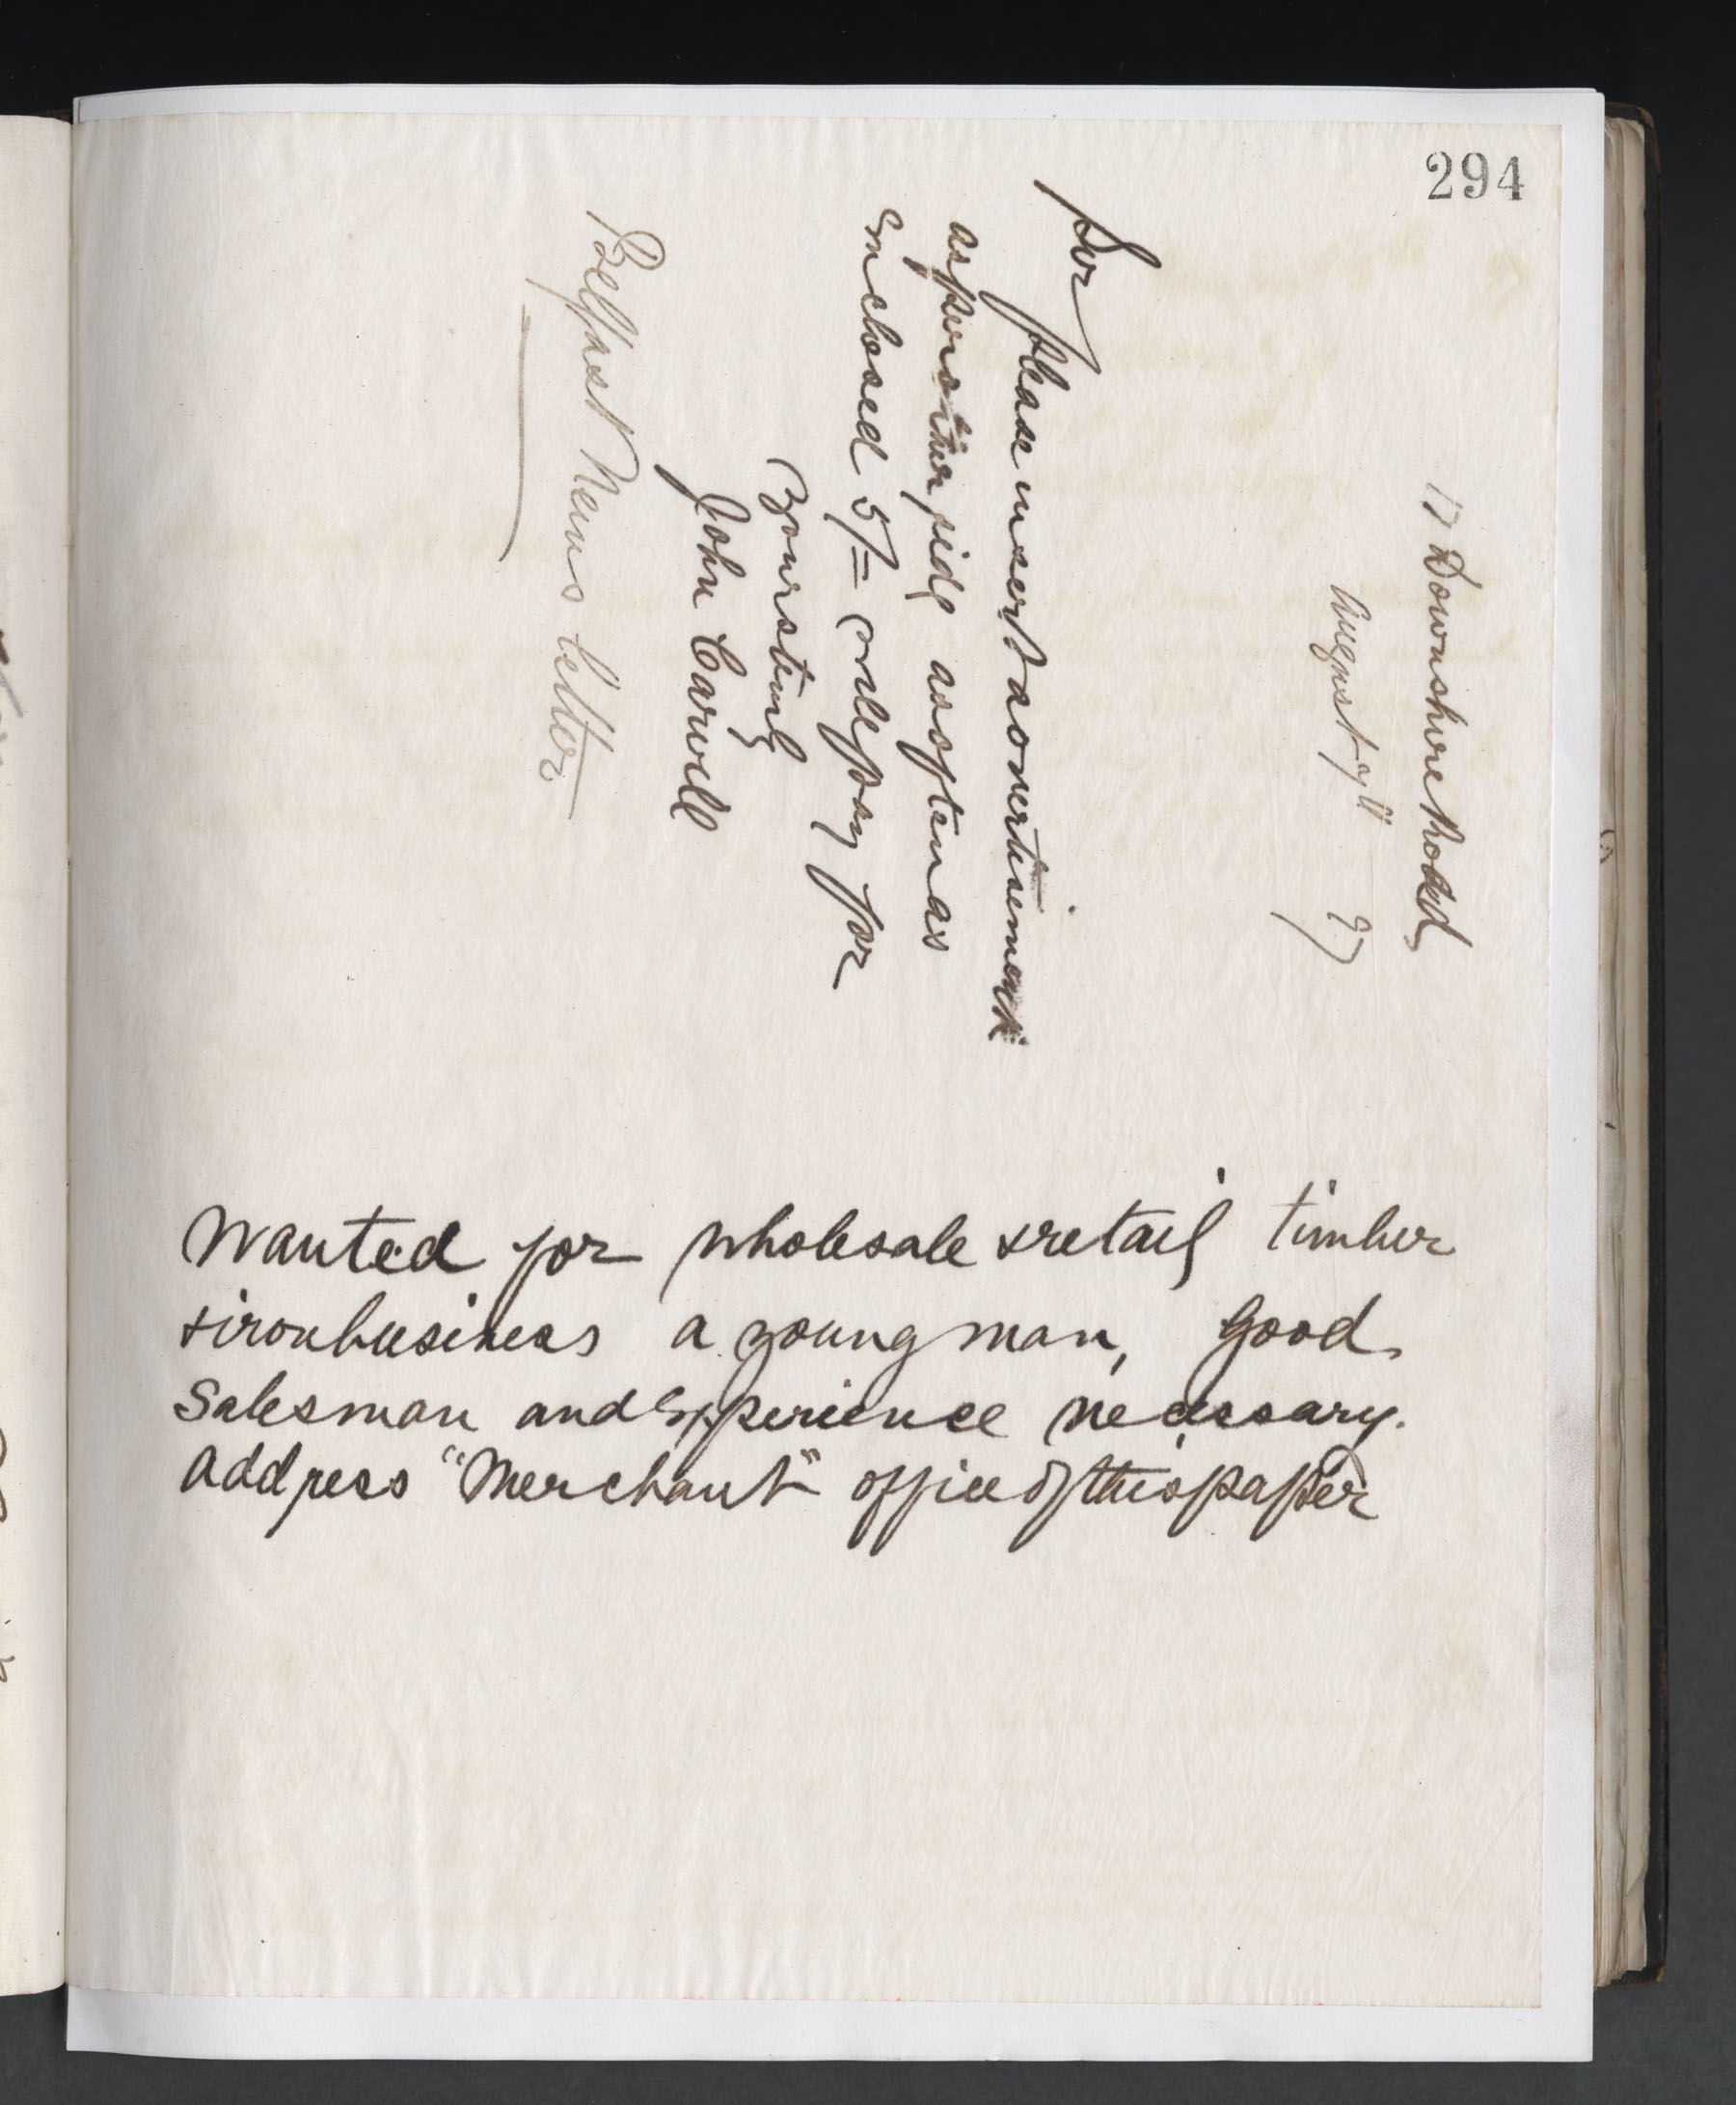 294
17 Downshire Road
August 27
Sir
please insert advertisement
as per other side as often as
Enclosed 5/= will pay for
Yours truly
John Carvill
Belfast News Letter
Wanted for wholesale & retail timber
& iron business a young man, good
Salesman and Experience necessary.
address "Merchant" office of this paper